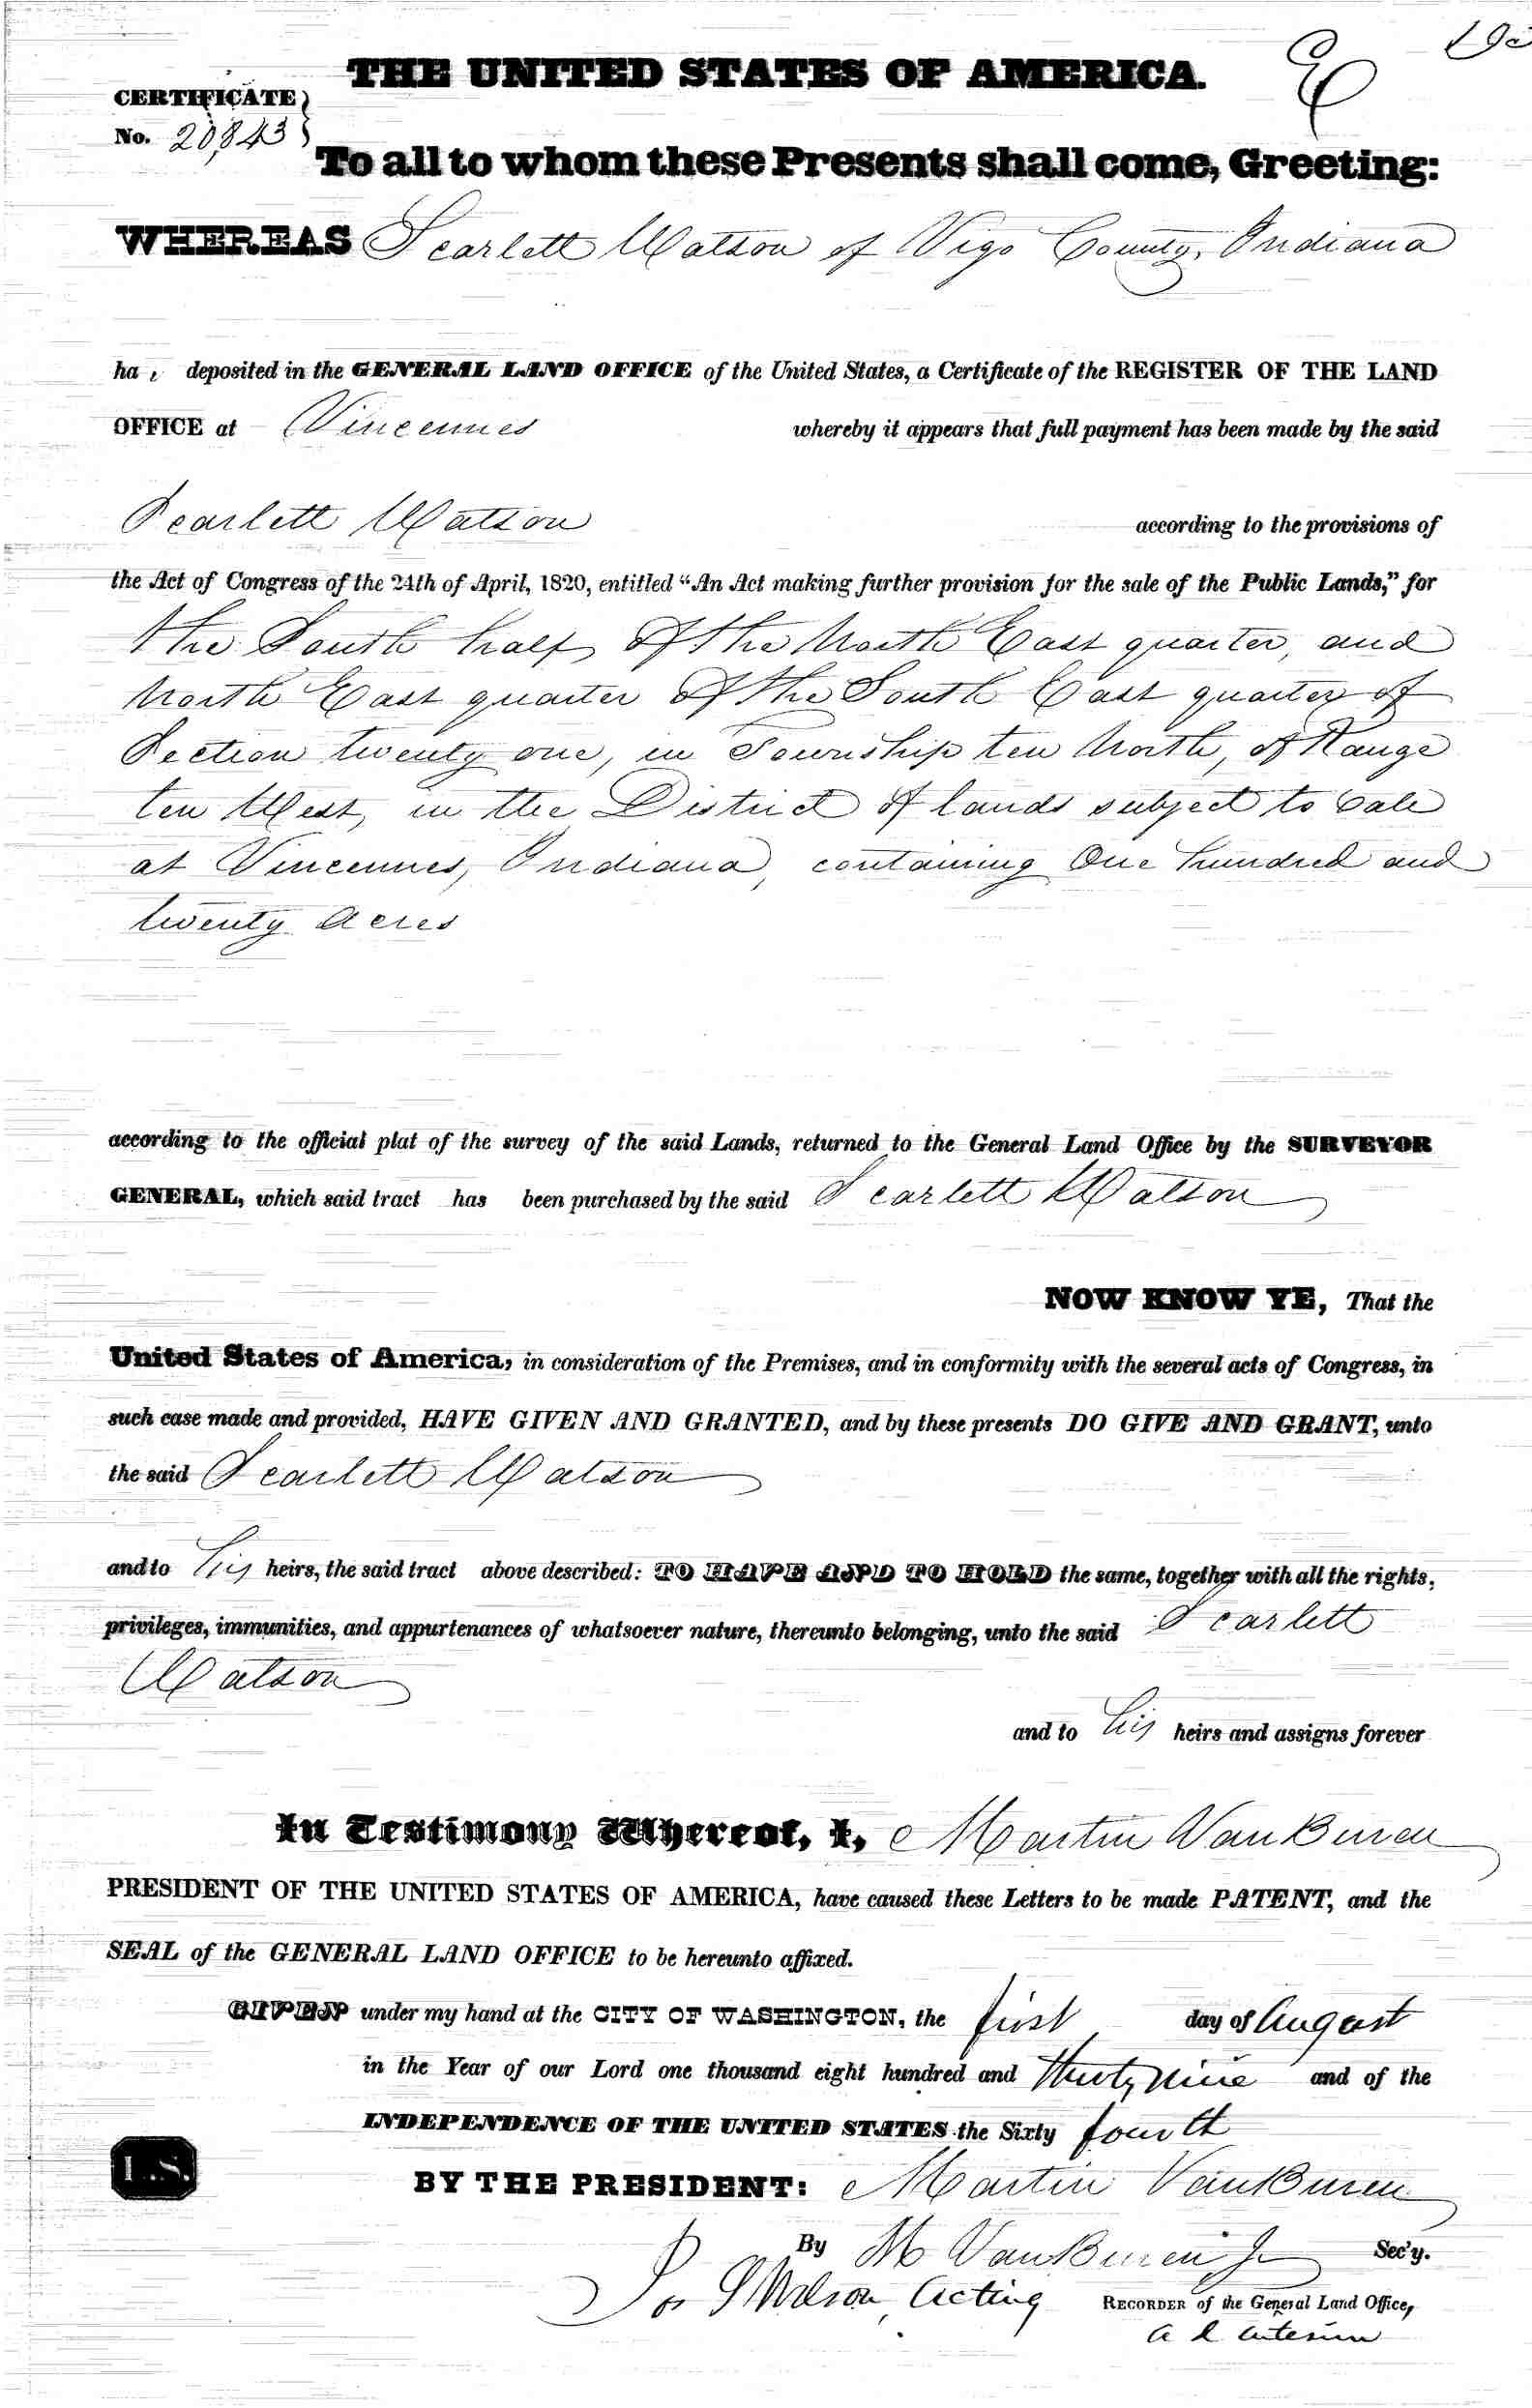 THE UNITED STATES OF AMERICA.
CERTIFICATE
No. 20,843
To all to whom these Presents shall come, Greeting:
WHEREAS Scarlett Watson of Vigo County, Indiana
ha deposited in the GENERAL LAND OFFICE of the United States, a Certificate of the REGISTER OF THE LAND
OFFICE at Vincennes whereby it appears that full payment has been made by the said
Scarlett Watson according to the provisions of
the Act of Congress of the 24th of April, 1820, entitled "An Act making further provision for the sale of the Public Lands," for
the South half, of the North East quarter, and
North East quarter of the South East quarter of
Section twenty one, in Township ten North, of Range
ten West, in the District of lands subject to Sale
at Vincennes, Indiana, containing One hundred and
twenty acres
according to the official plat of the survey of the said Lands, returned to the General Land Office by the SURVEYOR
GENERAL, which said tract has been purchased by the said Scarlett Watson
NOW KNOW YE, That the
United States of America, in consideration of the Premises, and in conformity with the several acts of Congress, in
such case made and provided, HAVE GIVEN AND GRANTED, and by these presents DO GIVE AND GRANT, unto
the said Scarlett Watson
and to his heirs, the said tract above described: TO HAVE AND TO HOLD the same, together with all the rights,
privileges, immunities, and appurtenances of whatsoever nature, thereunto belonging, unto the said Scarlett
Watson
and to his heirs and assigns forever
In Testimony Whereof, I, Martin Van Buren
PRESIDENT OF THE UNITED STATES OF AMERICA, have caused these Letters to be made PATENT, and the
SEAL of the GENERAL LAND OFFICE to be hereunto affixed.
GIVEN under my hand at the CITY OF WASHINGTON, the first day of August
in the Year of our Lord one thousand eight hundred and thirty nine and of the
INDEPENDENCE OF THE UNITED STATES the Sixty fourth
L.S.
BY THE PRESIDENT: Martin Van Buren
By M Van Buren Jr Sec'y.
Jos S Wilson, Acting RECORDER of the General Land Office,
ad interim